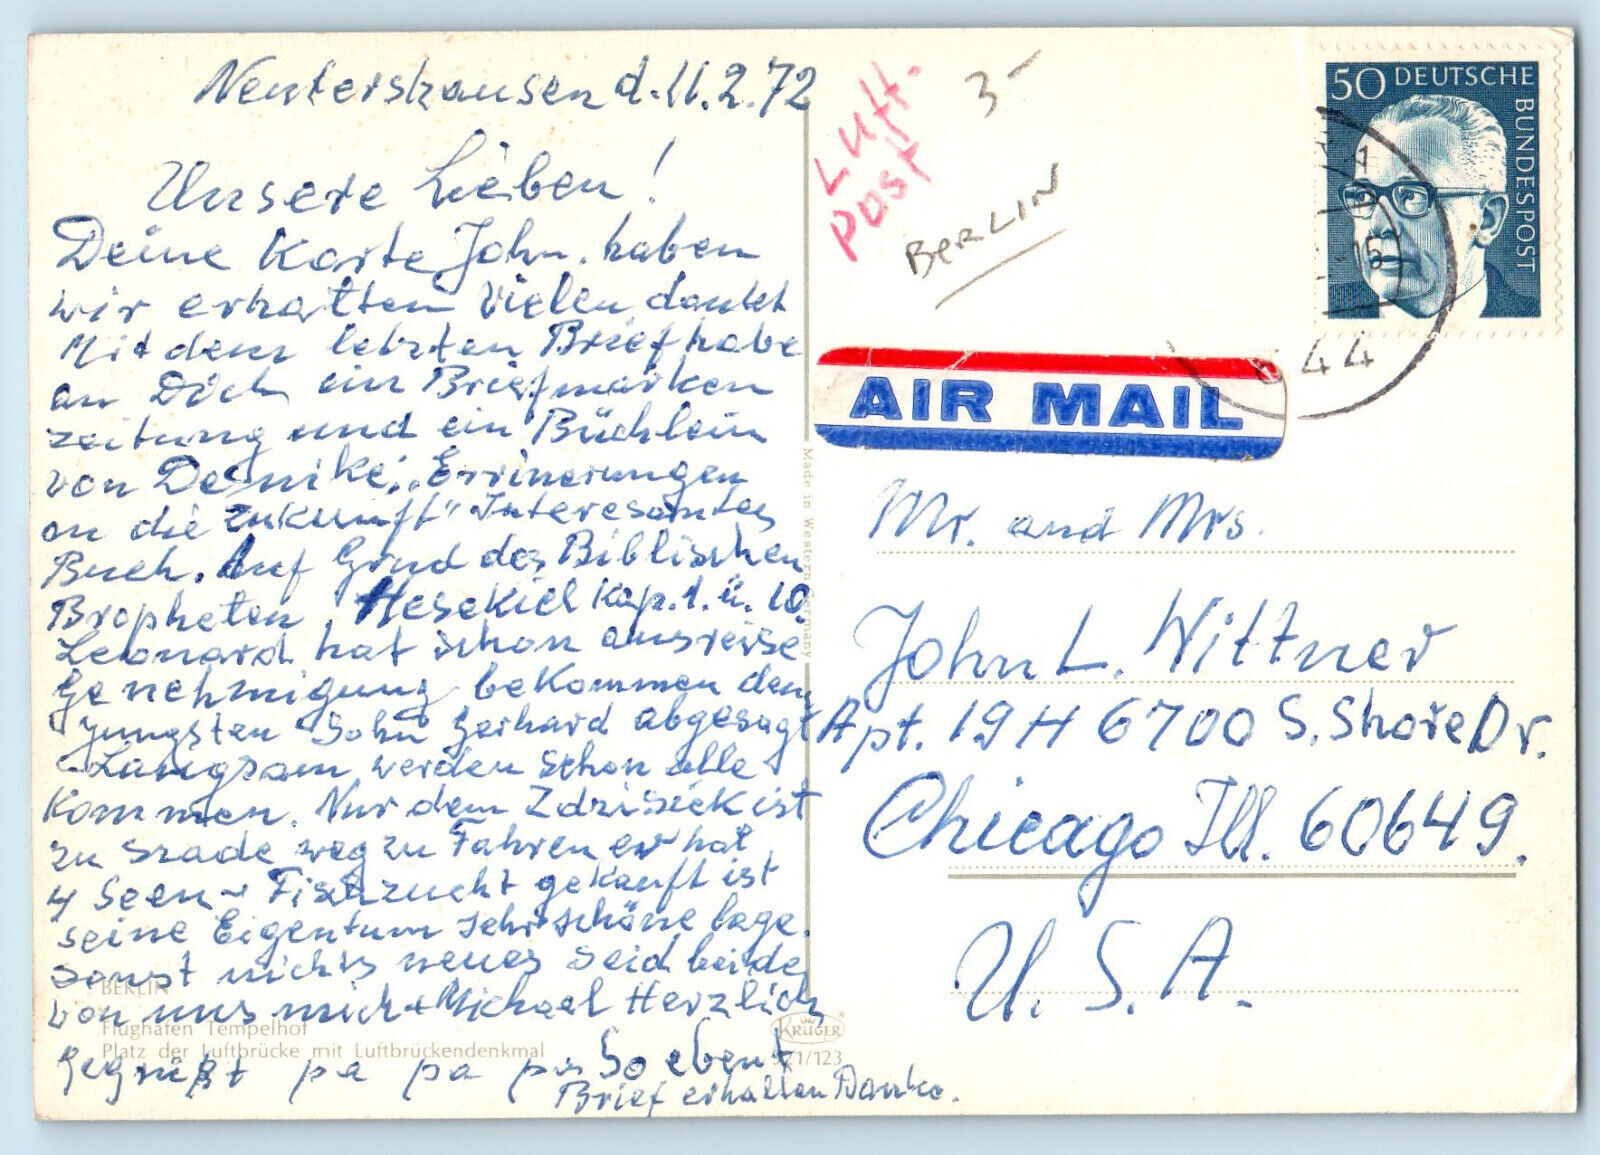 Neutershausen d. 11.2.72
Unsere Lieben!
Deine Karte John. haben
wir erhalten vielen dankt
Mit dem letzten Brief habe
an Dich ein Briefmarken
zeitung und ein Büchlein
von Deönike: „Errinerungen
an die Zukunft" Interesantes
Buch. Auf Grund des Biblischen
Bropheten Hesekiel Kap. 1. ü. 10
Leonard hat schon ausreise
Genehmigung bekommen dem
Jungsten Sohn Gerhard abgesagt
Langsam werden schon alle
kommen. Nur dem Zdrisiek ist
zu szade weg zu Fahren er hat
4 Seen Fischzucht gekauft ist
seine Eigentum sehr schöne lage.
Sonst nichts neues Seid beide
von uns mich + Michael Herzlich
gegrüßt pa pa pa So ebent
Brief erhalten Danke.
BERLIN
Flughafen Tempelhof
Platz der Luftbrücke mit Luftbrückendenkmal
KRÜGER
/123
Made in Western Germany
Luft-
Post
3-
BERLIN
50 DEUTSCHE
BUNDESPOST
644
AIR MAIL
Mr. and Mrs.
John L. Wittner
Apt. 19 H 6700 S. Shore Dr.
Chicago Ill. 60649.
U. S. A.